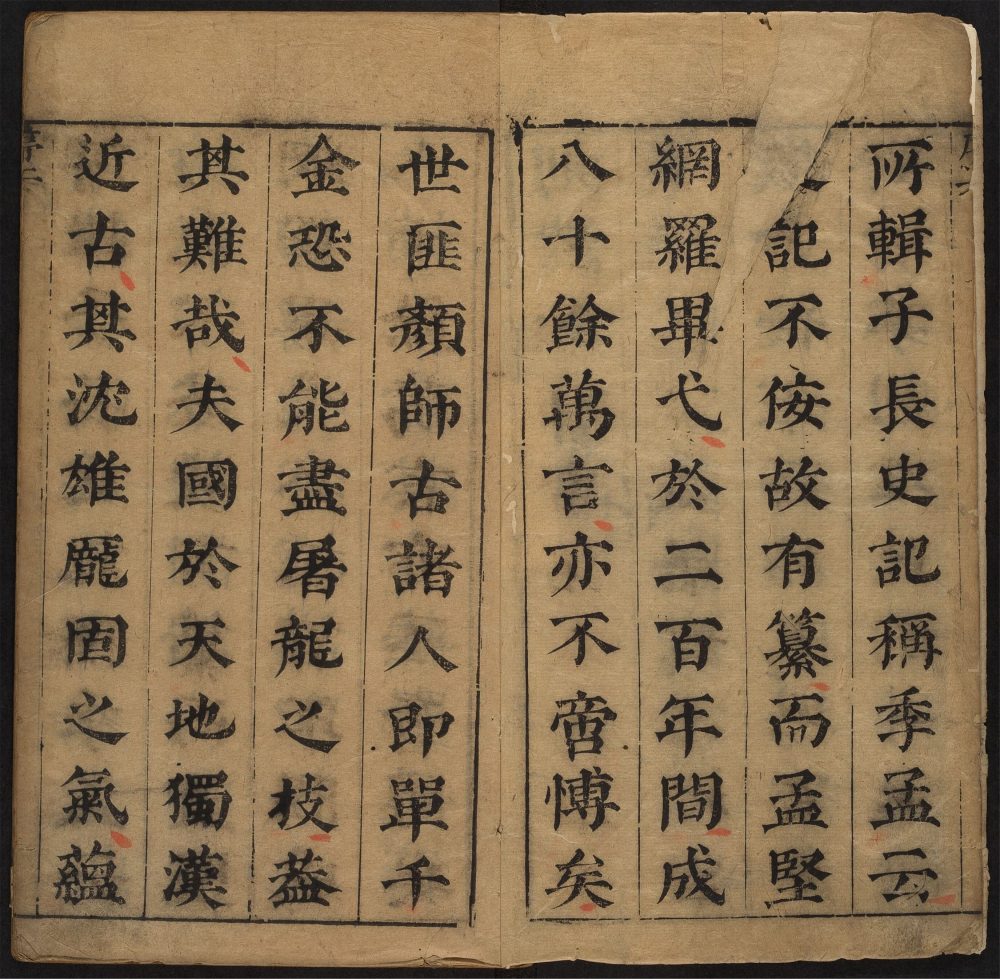 所輯子長史記稱季孟云
記不侫故有纂而孟堅
網羅畢弋於二百年間成
八十餘萬言亦不啻慱矣
世匪顏師古諸人即單千
金恐不能盡屠龍之技葢
其難哉夫國於天地獨漢
近古其沈雄龎固之氣蘊